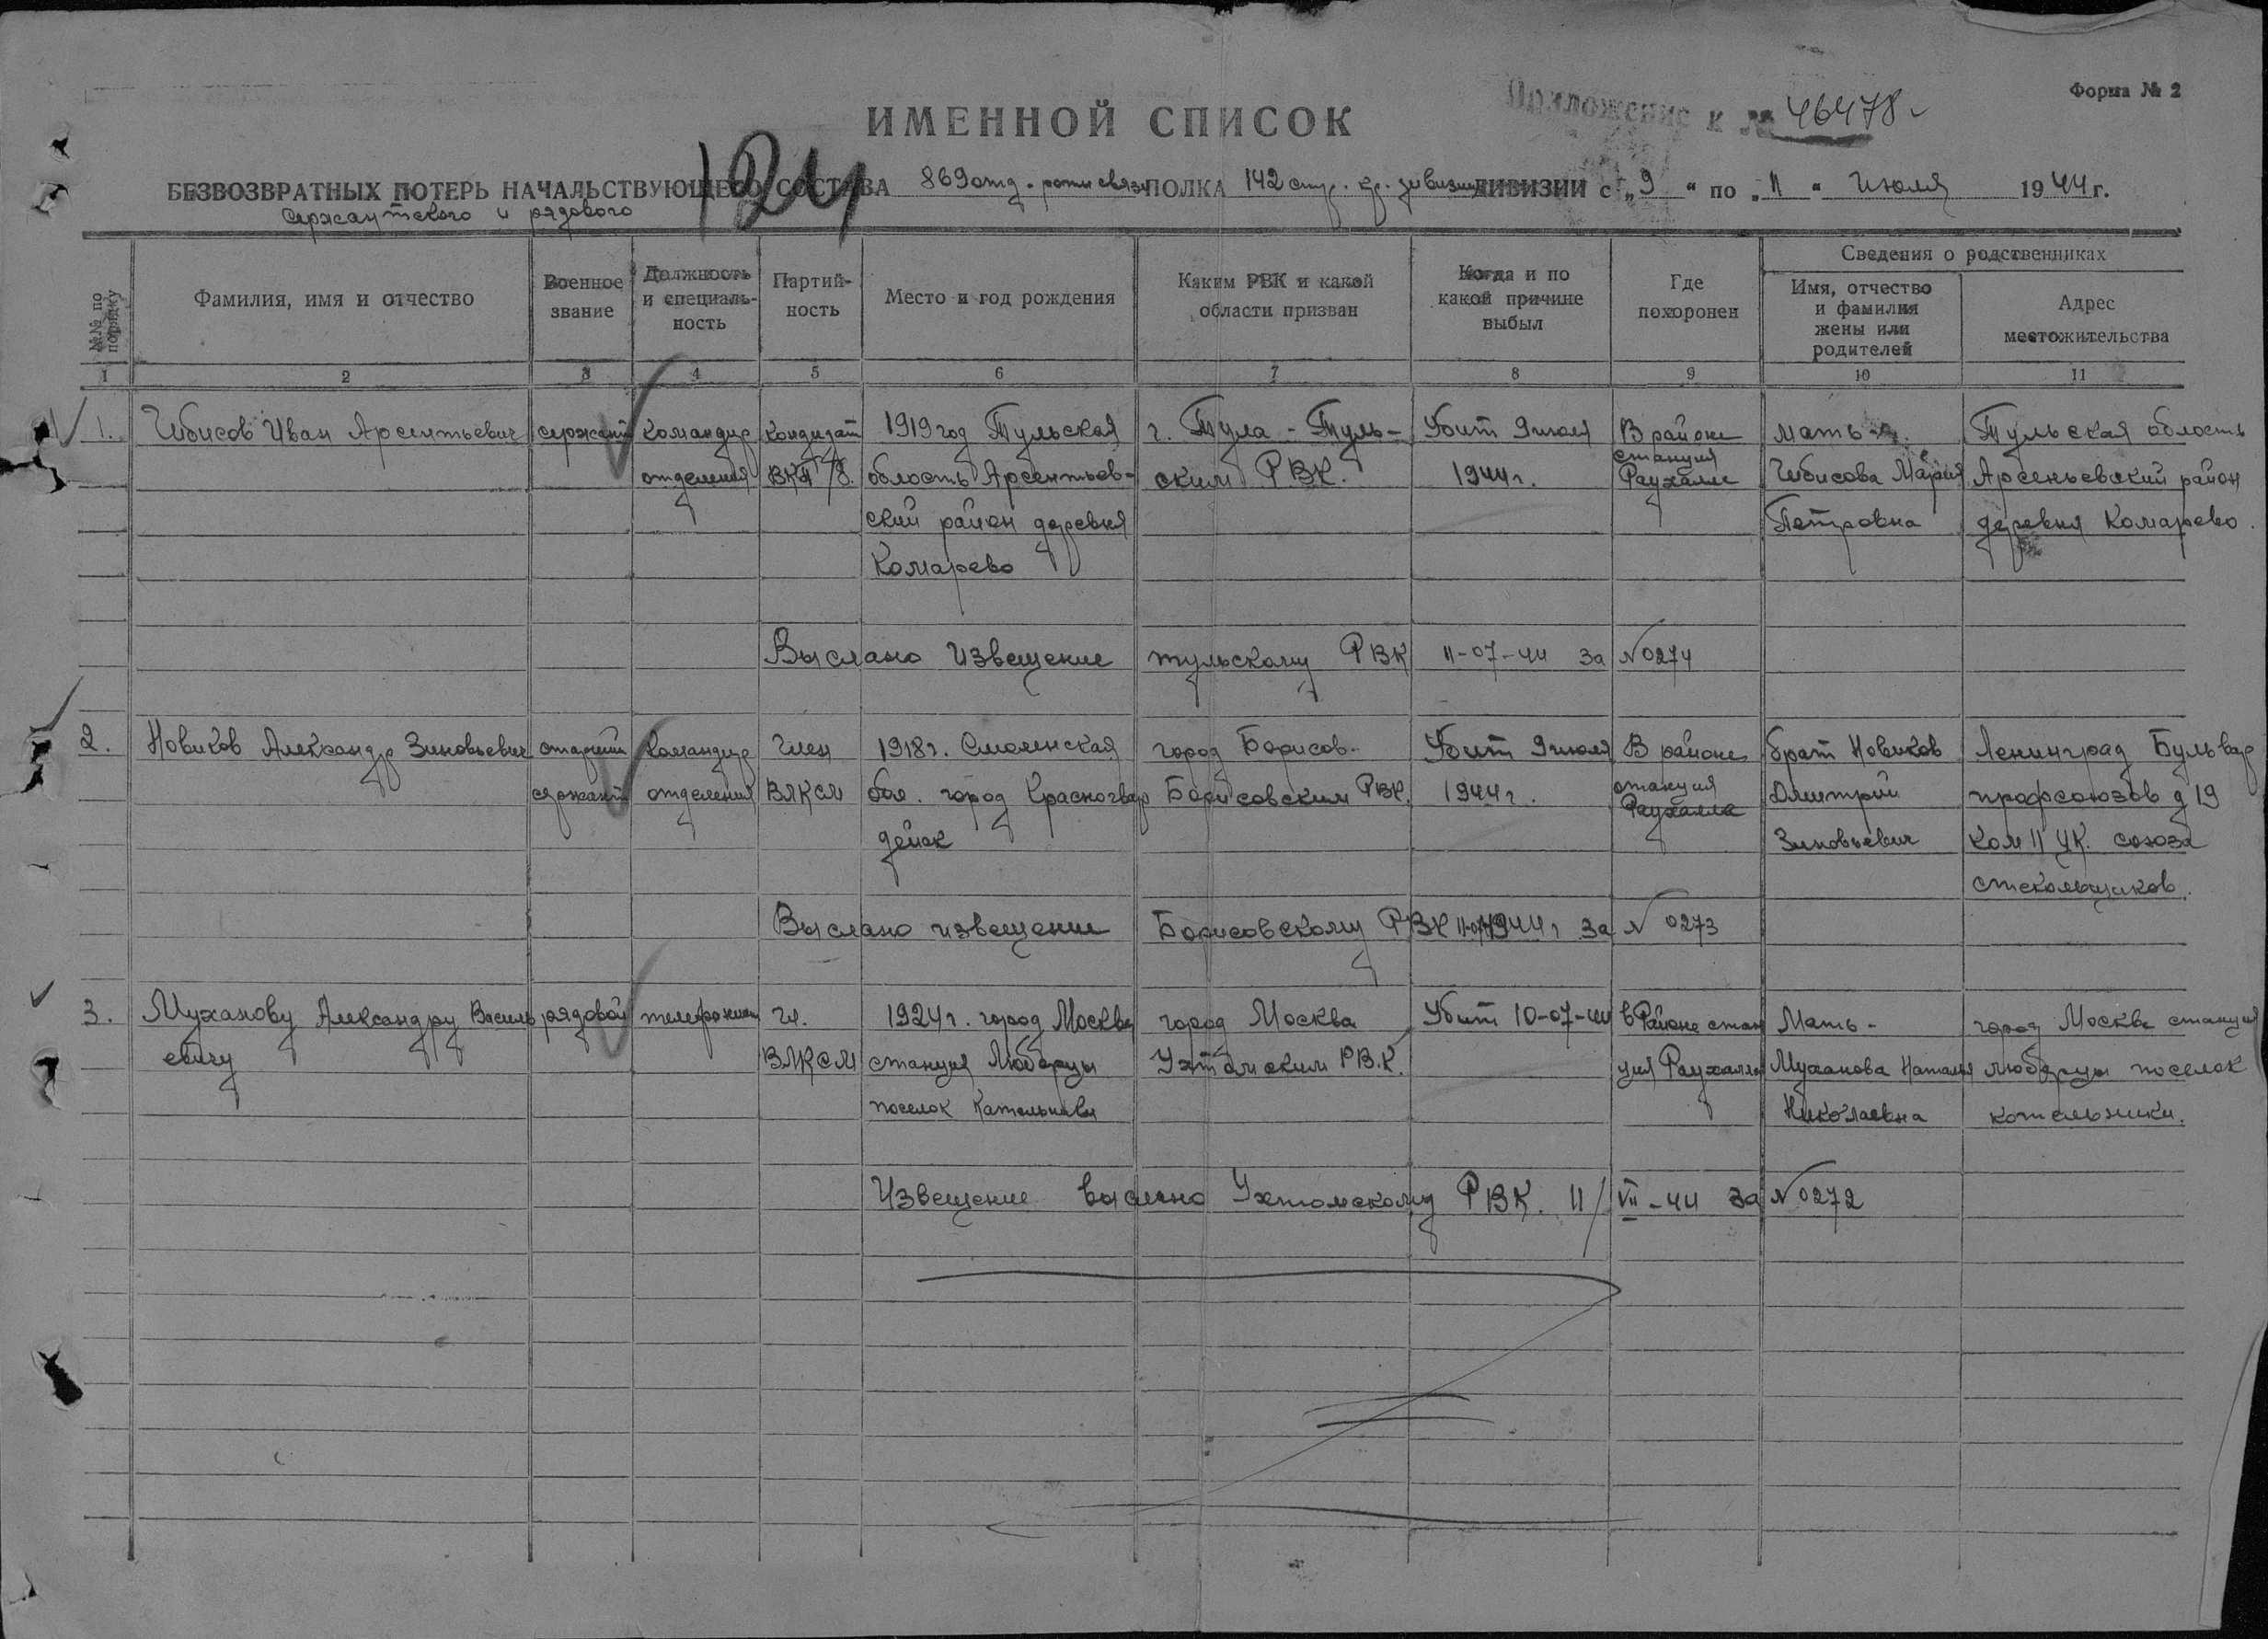 Форма № 2
Приложение к № 46478
ИМЕННОЙ СПИСОК
124
БЕЗВОЗВРАТНЫХ ПОТЕРЬ НАЧАЛЬСТВУЮЩЕГО СОСТАВА 869 отд. роты связи ПОЛКА 142 стр. кр. дивизии ДИВИЗИИ с „9“ по „11“ Июля 1944 г.
Сержантского и рядового
№№ по порядку
Фамилия, имя и отчество
Военное звание
Должность и специальность
Партий-
ность
Место и год рождения
Каким РВК и какой
области призван
Когда и по
какой причине
выбыл
Где
похоронен
Сведения о родственниках
Имя, отчество
и фамилия
жены или
родителей
Адрес
местожительства
1 2 3 4 5 6 7 8 9 10 11
1. Чибисов Иван Арсентьевич сержант Командир Кондидат 1919 год Тульская г. Тула - Туль- Убит 9 июля В районе мать Тульская область
отделения ВКП/б. область Арсентьев- ским РВК. 1944 г. станция Раухалле Чибисова Мария Арсеньевский район
ский район деревня Петровна деревня Комарево.
Комарево
Выслано Извещение тульскому РВК 11-07-44 за № 0274
2. Новиков Александр Зиновьевич старший Командир Член 1918 г. Смоленская город Борисов- Убит 9 июля В районе брат Новиков Ленинград Бульвар
сержант отделения ВЛКСМ обл. город Красногвар Борисовским РВК. 1944 г. станция Раухалла Дмитрий профсоюзов д 19
дейск Зиновьевич Ком 11 ЦК. союза
стекольщиков.
Выслано извещение Борисовскому РВК 11-07-1944 г за № 0273
3. Муханову Александру Василь рядовой телефонист Чл. 1924 г. город Москва город Москва Убит 10-07-44 в Районе стан Мать - город Москва станция
евичу ВЛКСМ станция Люберцы Ухтомским РВ.К. ция Раухалла Муханова Наталья Люберцы поселок
поселок Котельники Николаевна котельники.
Извещение выслано Ухтомскому РВК. 11/VII-44 за № 0272